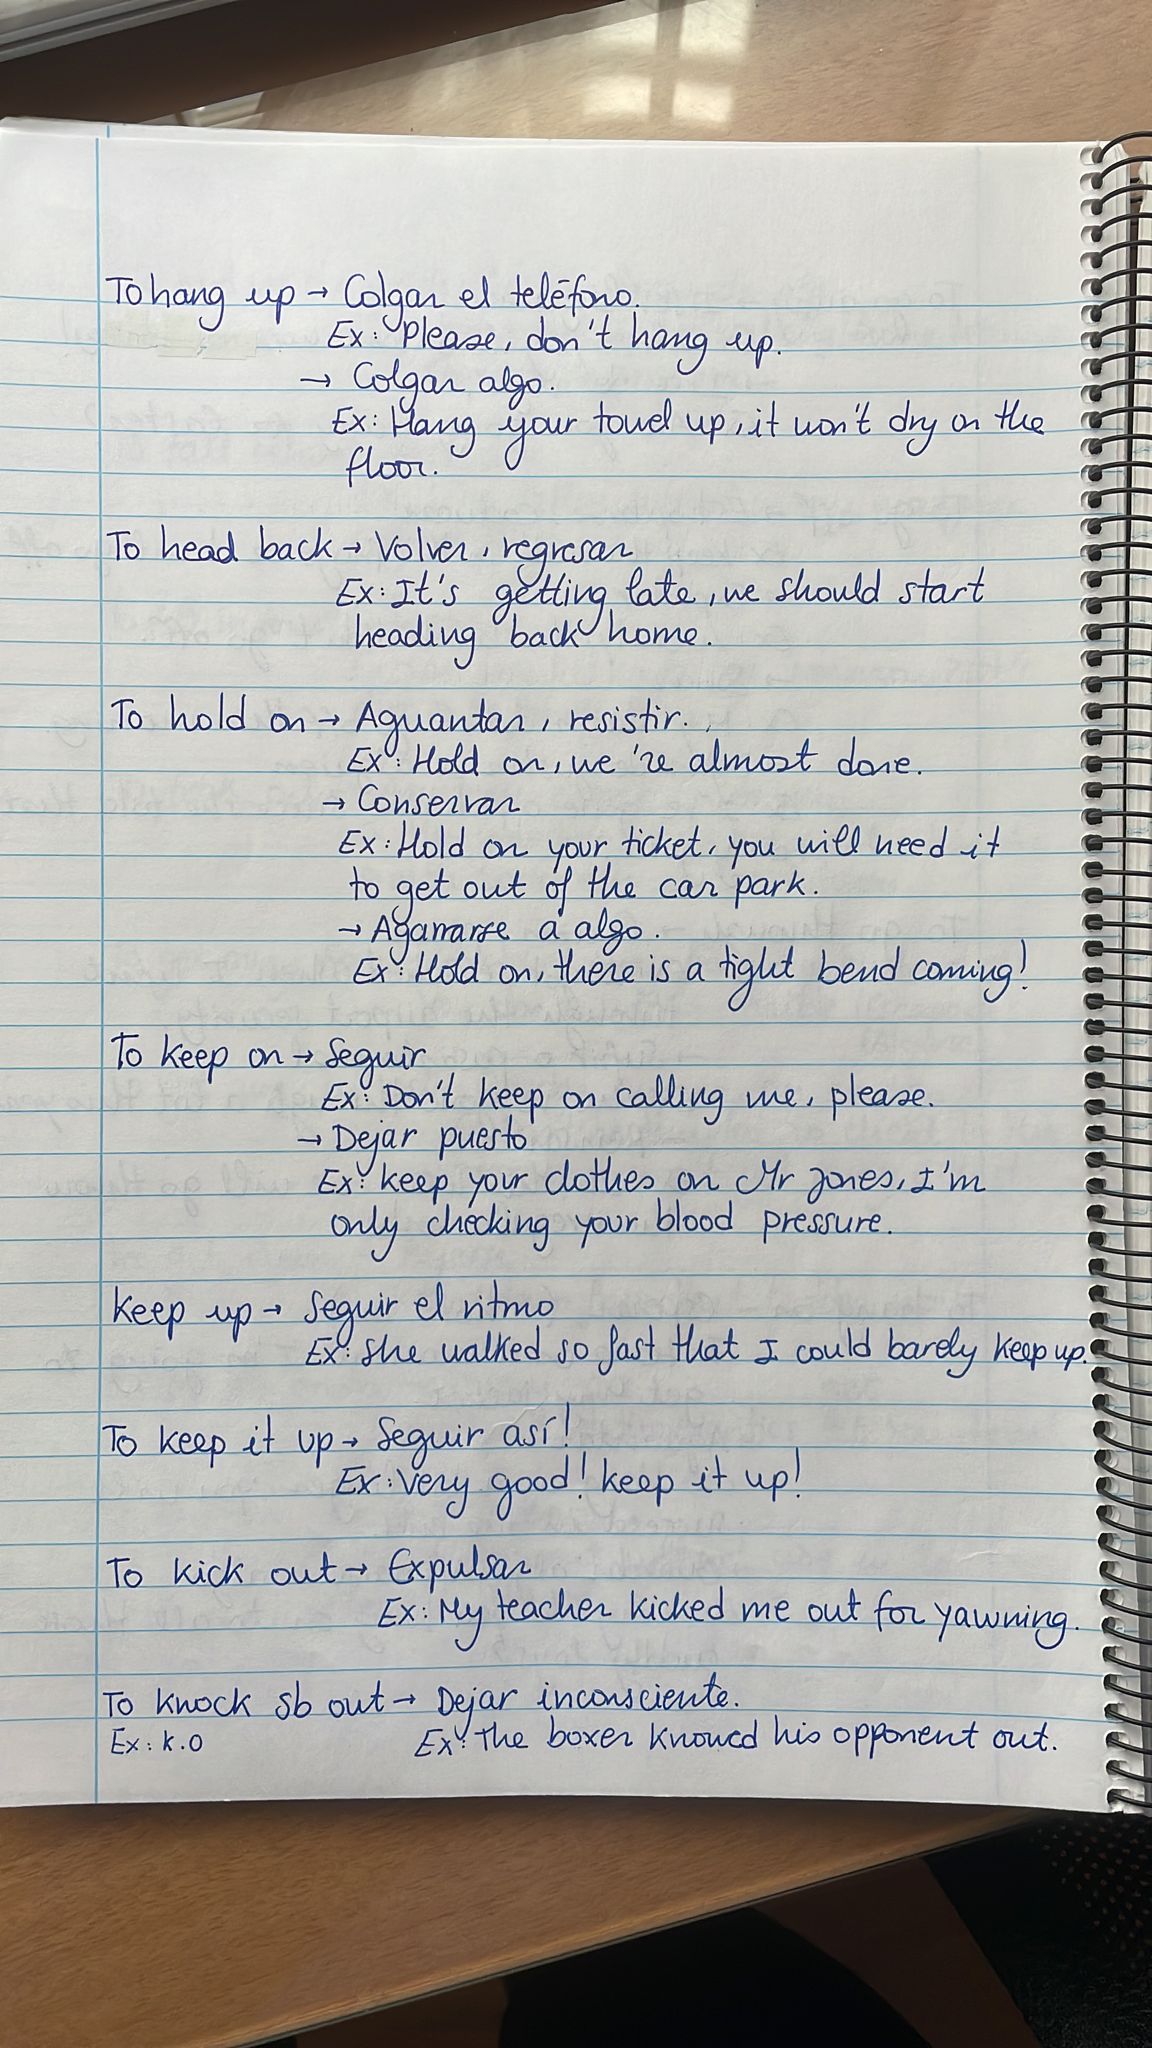 To hang up → Colgar el teléfono.
Ex: Please, don't hang up.
→ Colgar algo.
Ex: Hang your towel up, it won't dry on the
floor.
To head back → Volver, regresar
Ex: It's getting late, we should start
heading back home.
To hold on → Aguantar, resistir.
Ex: Hold on, we're almost done.
→ Conservar
Ex: Hold on your ticket, you will need it
to get out of the car park.
→ Agarrarse a algo.
Ex: Hold on, there is a tight bend coming!
To keep on → Seguir
Ex: Don't keep on calling me, please.
→ Dejar puesto
Ex: keep your clothes on Mr Jones, I'm
only checking your blood pressure.
keep up → Seguir el ritmo
Ex: She walked so fast that I could barely keep up.
To keep it up → Seguir así!
Ex: Very good! keep it up!
To kick out → Expulsar
Ex: My teacher kicked me out for yawning.
To knock sb out → Dejar inconsciente.
Ex: k.O Ex: The boxer knowed his opponent out.